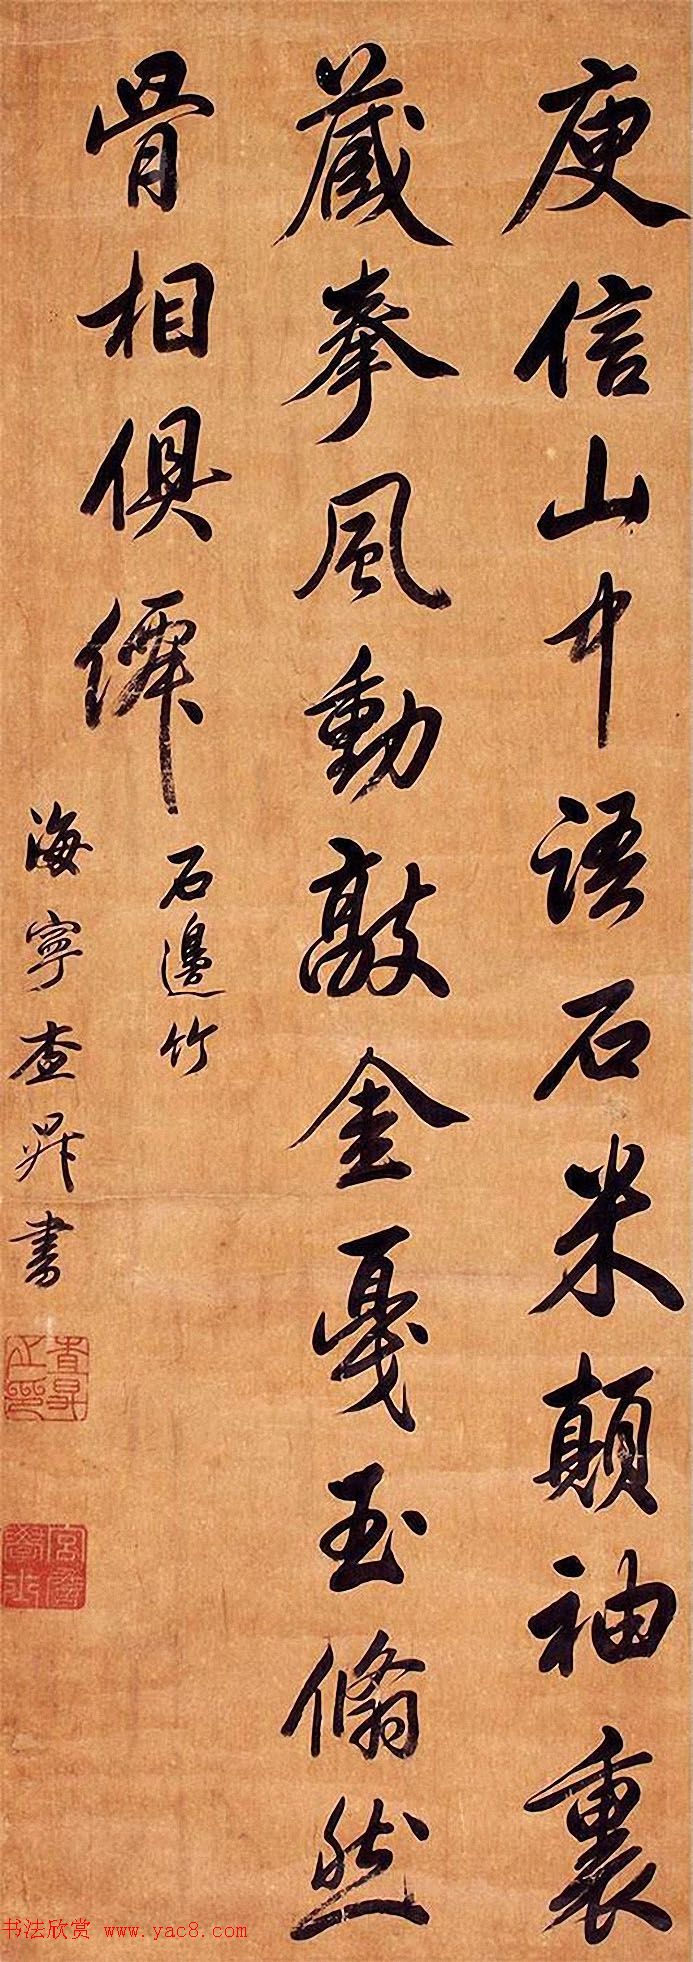 庾信山中語石米顛袖裏
藏拳風動敲金戛玉翛然
骨相俱僊
石邊竹
海寧查昇書
书法欣赏 www.yac8.com